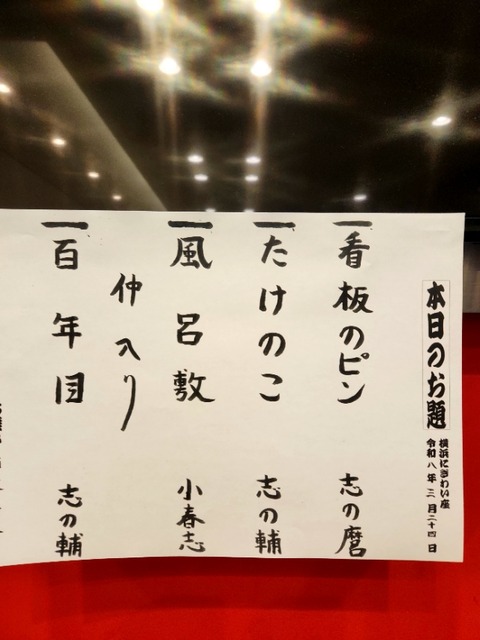 本日のお題
横浜にぎわい座
令和八年三月二十四日
一看板のピン 志の麿
一たけのこ 志の輔
一風呂敷 小春志
仲入り
一百年目 志の輔